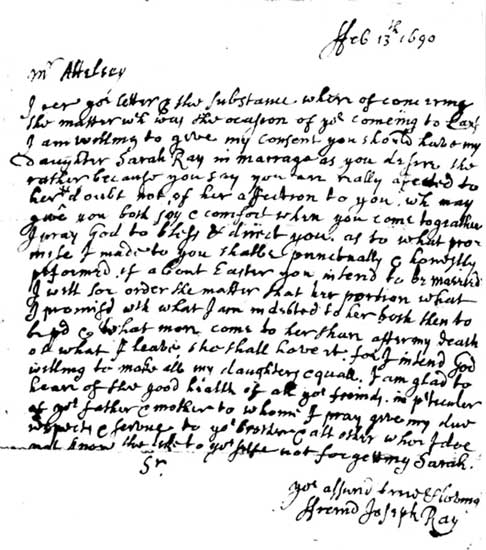 ffeb 13th 1690
Mr Attelsey
I rec yor letter & the substance where of concerning
the matter wch was the occasion of yor comeing to
I am willing to give my consent you should have my
daughter Sarah Ray in marrage as you desire the
rather because you say you are really afected to
her & doubt not of her affection to you. wch may
give you both joy & comfort when you come together
I pray God to bless & direct you. as to what pro
mise I made to you shalbe punctually & honestly
pformed, if about Easter you intend to be married
I will soe order the matter that her portion what
I promised with what I am indebted to her both then to
be pd & what more come to her share after my death
of what I leave, she shall have it. for I intend God
willing to make all my daughters equall. I am glad to
heare of the good health of all yor freinds, in pticuler
of yor father & mother to whome I pray give my due
respects & servise to yor brother & all other whoe I doe
not know the like to yor selfe not forgetting my Sarah.
Sr.
yor assured true & loving
ffreind Joseph Ray